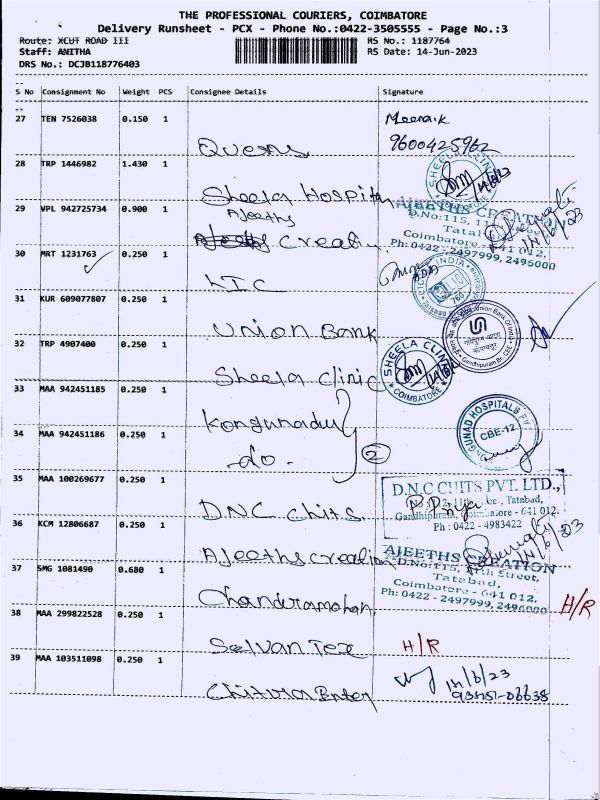 THE PROFESSIONAL COURIERS, COIMBATORE
Delivery Runsheet - PCX - Phone No.:0422-3505555 - Page No.:3
Route: XCUT ROAD III RS No.: 1187764
Staff: ANITHA RS Date: 14-Jun-2023
DRS No.: DCJB118776403
S No Consignment No Weight PCS Consignee Details Signature
27 TEN 7526038 0.150 1 Meenaik
Queens 9600425962
28 TRP 1446982 1.430 1
SHEELA CLINIC
14/6/23
Sheela Hospital
29 VPL 942725734 0.900 1 AJEETHS CREATION
Ajeeths D.No:115, 11
Ajeeths Creation Tatabad
Coimbatore - 641 012.
Ph: 0422 - 2497999, 2496000
14/6/23
30 MRT 1231763 0.250 1
LIC
31 KUR 609077807 0.250 1
Union Bank
Union Bank Of India
Gandhipuram Br. CBE
32 TRP 4907400 0.250 1
Sheela clinic
SHEELA CLINIC
COIMBATORE
33 MAA 942451185 0.250 1
Kongunadu
34 MAA 942451186 0.250 1
-do- 2
HOSPITALS
CBE-12
35 MAA 100269677 0.250 1
DNC chits
D.N.C CHITS PVT. LTD.,
Tatabad,
Gandhipuram, Coimbatore - 641 012.
Ph : 0422 - 4983422
36 KCM 12806687 0.250 1
Ajeeths creation
AJEETHS CREATION
D.No:115, 11th Street,
Tatabad,
Coimbatore - 641 012.
Ph: 0422 - 2497999, 2496000
14/6/23
37 SMG 1081490 0.680 1
Chandramohan H/R
38 MAA 299822528 0.250 1
Selvan Tex H/R
39 MAA 103511098 0.250 1
Chitra Enter 14/6/23